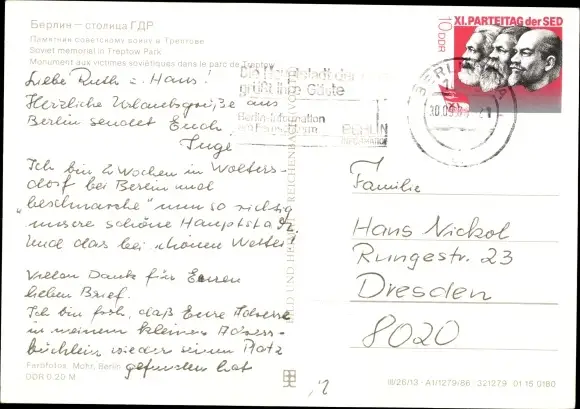 Берлин — столица ГДР
Памятник советскому воину в Трептове
Soviet memorial in Treptow Park.
Monument aux victimes soviétiques dans le parc de Treptow
Liebe Ruth u. Hans!
Herzliche Urlaubsgrüße aus
Berlin sendet Euch
Inge
Ich bin 2 Wochen in Wolters-
dorf bei Berlin und
"beschnarche" nun so richtig
unsere schöne Hauptstadt.
Und das bei schönen Wetter!
Vielen Dank für Euren
lieben Brief.
Ich bin froh, daß Eure Adresse
in meinem kleinen Adress-
büchlein wieder seinen Platz
gefunden hat
Farbfotos: Mohr, Berlin
DDR 0.20 M
BILD UND HEIMAT REICHENBACH
XI. PARTEITAG DER SED
10 DDR
Die Hauptstadt der
grüßt ihre Gäste
Berlin-Information
am Fernsehturm
BERLIN
INFORMATION
BERLIN
Familie
Hans Nickol
Rungestr. 23
Dresden
8020
III/26/13 · A1/1279/86 321279 01 15 0180